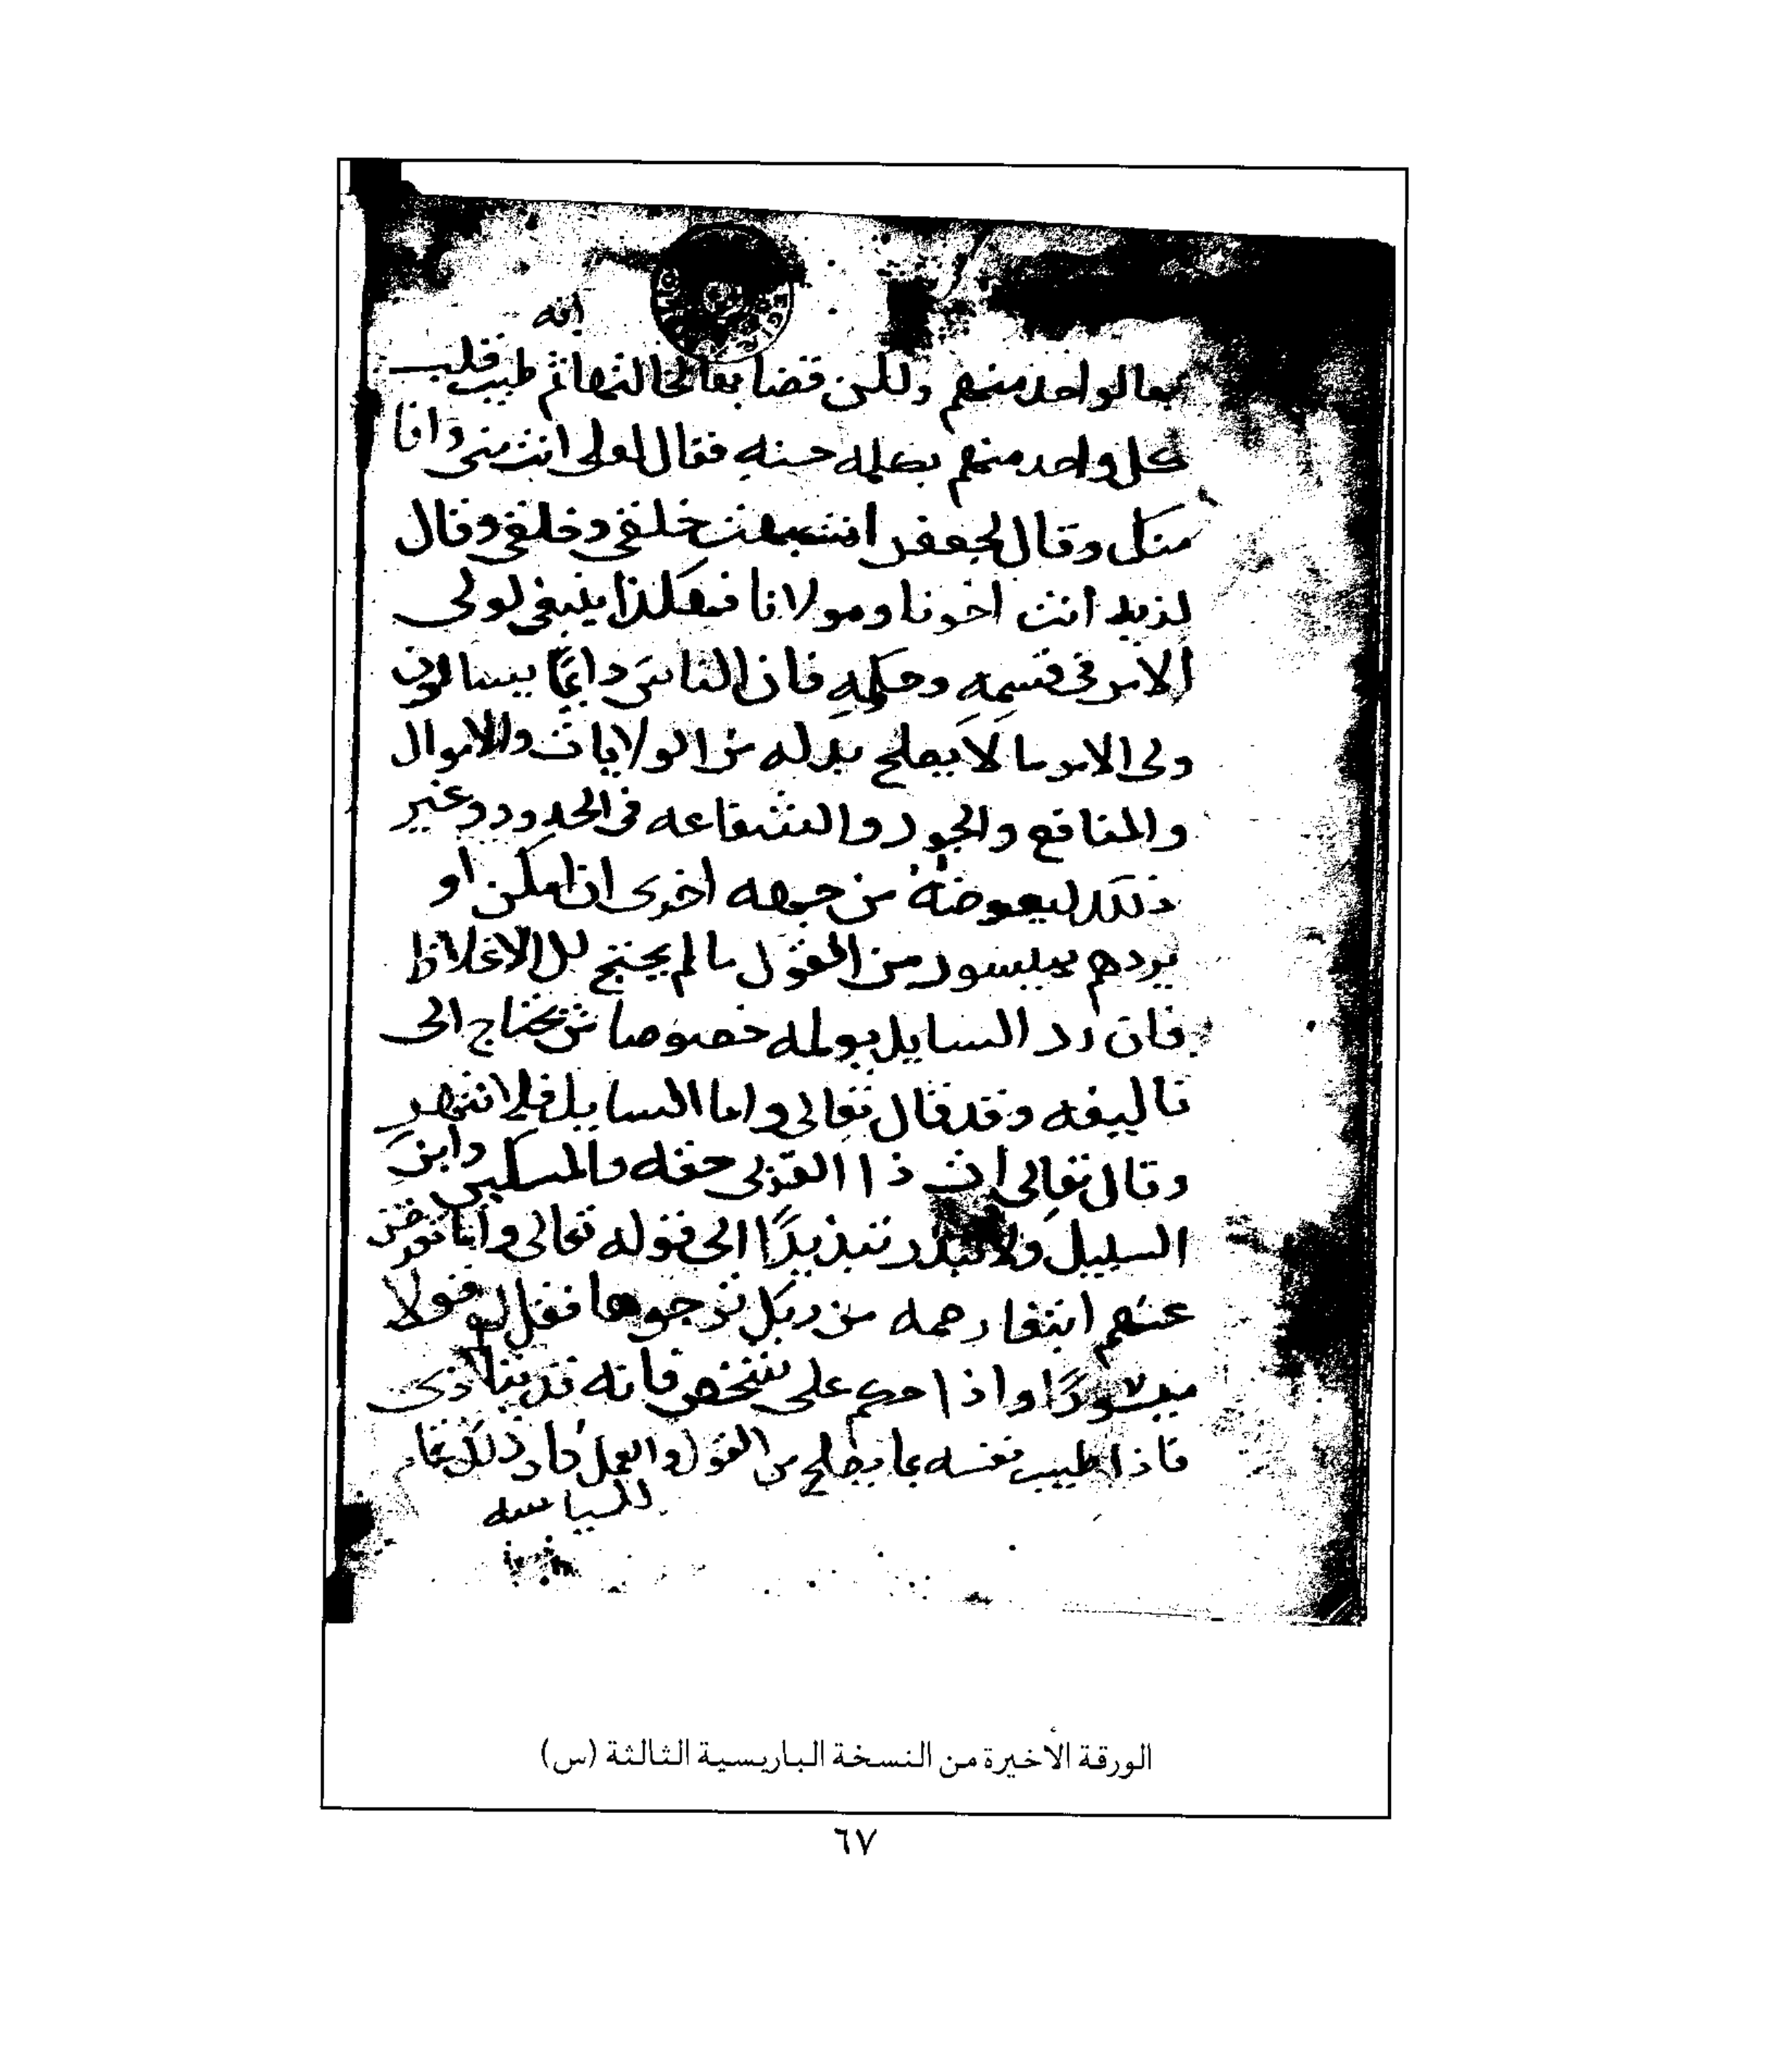 انه
بها لواحد منهم ولكن قضا بها لخالتها ثم طيب قلب
كل واحد منهم بكلمه حسنه فقال لعلى انت منى وانا
منك وقال لجعفر اشبهت خلقى وخلقى وقال
لزيد أنت اخونا ومولانا فهكذا ينبغى لولى
الامر فى قسمه وحكمه فان الناس دايمًا يسالون
ولى الامر ما لا يصلح بذله من الولايات والاموال
والمنافع والجور والشفاعه فى الحدود وغير
ذلك ليعوضه من جهه اخرى ان امكن او
يردهم بميسور من القول ما لم يحتج الاغلاظ
فان رد السايل يولمه خصوصا من يحتاج الى
تاليفه وقد قال تعالى واما السايل فلا تنهر
وقال تعالى ات ذا القربى حقه والمسكين وابن
السبيل ولا تبذر تبذيرًا الى قوله تعالى واما تعرضن
عنهم ابتغا رحمه من ربك ترجوها فقل لهم قولا
ميسورًا واذا حكم على شخص فانه قد يتاذى
فاذا طيب نفسه بما يصلح من القول والعمل كان ذلك تمام
السياسه
الورقة الأخيرة من النسخة الباريسية الثالثة (س)
٦٧